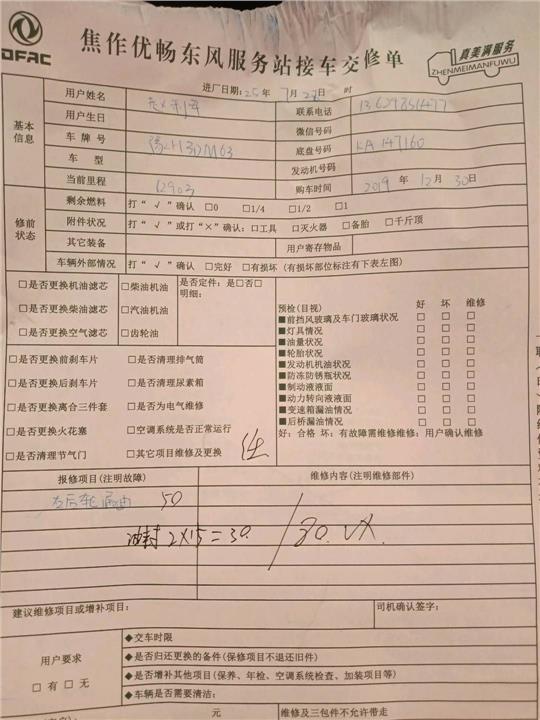 DFAC
焦作优畅东风服务站接车交修单
真美满服务
ZHENMEIMANFUWU
进厂日期：25年 7月 日 时
基本信息
用户姓名 联系电话
用户生日 微信号码
车牌号 底盘号码 LA147160
车型 发动机号码
当前里程 12903 购车时间 2019年12月30日
修前状态
剩余燃料 打“√”确认 □0 □1/4 □1/2 □1
附件状况 打“√”或打“×”确认：□工具 □灭火器 □备胎 □千斤顶
其它装备 用户寄存物品
车辆外部情况 打“√”确认 □完好 □有损坏（有损坏部位标注有下表左图）
□是否更换机油滤芯 □柴油机油 是否定件：是□否□
明细：
□是否更换柴油滤芯 □汽油机油
□是否更换空气滤芯 □齿轮油
预检(目视) 好 坏 维修
■前挡风玻璃及车门玻璃状况 □ □ □
■灯具情况 □ □ □
■油量状况 □ □ □
■轮胎状况 □ □ □
■发动机机油状况 □ □ □
■防冻防锈瓶状况 □ □ □
■制动液液面 □ □ □
■动力转向液液面 □ □ □
■变速箱漏油情况 □ □ □
■后桥漏油情况 □ □ □
好：合格 坏：有故障需维修维修：用户确认维修
□是否更换前刹车片 □是否清理排气筒
□是否更换后刹车片 □是否清理尿素箱
□是否更换离合三件套 □是否为电气维修
□是否更换火花塞 □空调系统是否正常运行
□是否清理节气门 □其它项目维修及更换
报修项目(注明故障) 维修内容(注明维修部件)
右后轮漏油 50
油封 2×15=30. 80. VX.
建议维修项目或增补项目： 司机确认签字：
用户要求
□有 □无
◆交车时限
◆是否归还更换的备件(保修项目不退还旧件)
◆是否增补其他项目(保养、年检、空调系统检查、加装项目等)
◆车辆是否需要清洁：
元 维修及三包件不允许带走